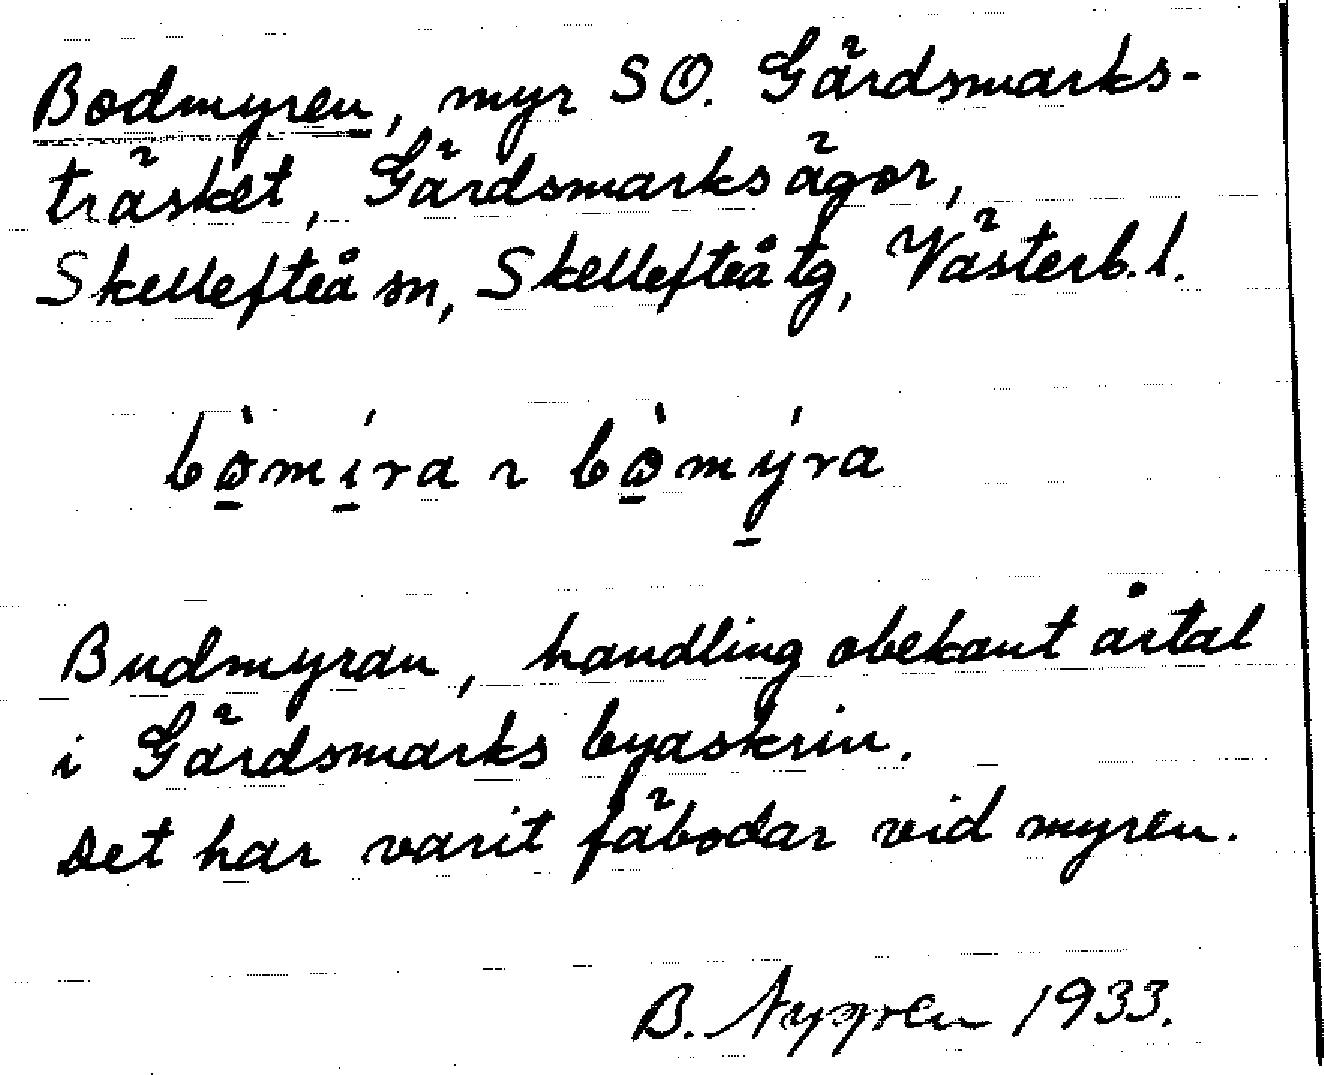 Bodmyren, myr SO. Gärdsmarks-
träsket, Gärdsmarks ägor,
Skellefteå sn, Skellefteå tg, Västerb. l.
Budmyran, handling obekant årtal
i Gärdsmarks byaskrin.
Det har varit fäbodar vid myren.
B. Nygren 1933.